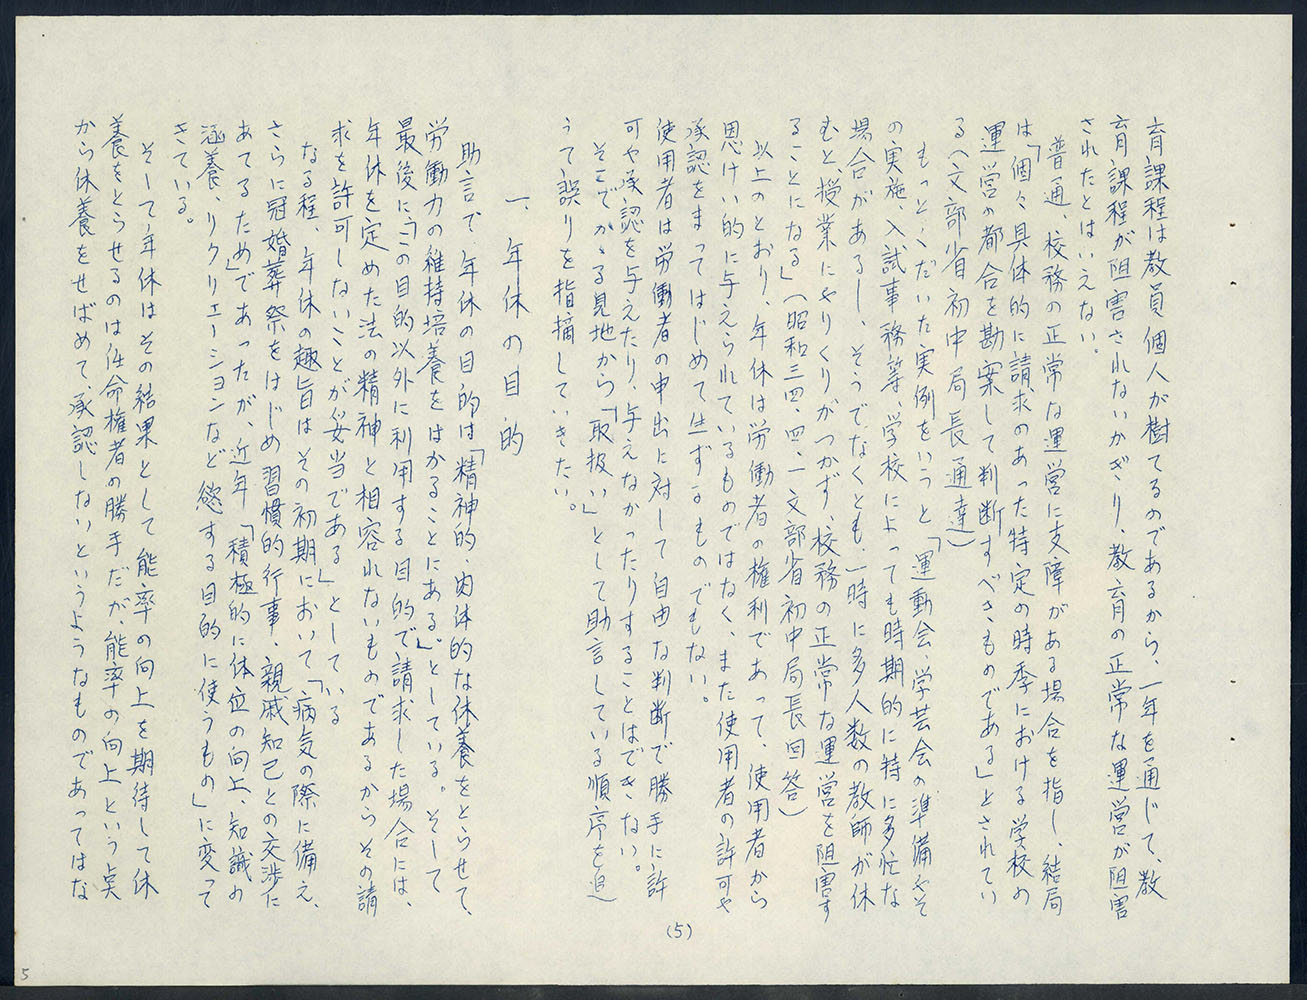 育課程は教員個人が樹てるのであるから、一年を通じて、教
育課程が阻害されないかぎり、教育の正常な運営が阻害
されたとはいえない。
普通、校務の正常な運営に支障がある場合を指し、結局
は「個々具体的に請求のあった特定の時季における学校の
運営の都合を勘案して判断すべきものである」とされてい
る（文部省初中局長通達）
もっとくだいた実例をいうと「運動会、学芸会の準備やそ
の実施、入試事務等、学校によっても時期的に特に多忙な
場合があるし、そうでなくとも、一時に多人数の教師が休
むと、授業にやりくりがつかず、校務の正常な運営を阻害す
ることになる」（昭和三四、四、一文部省初中局長回答）
以上のとおり、年休は労働者の権利であって、使用者から
恩けい的に与えられているものではなく、また使用者の許可や
承認をまってはじめて生ずるものでもない。
使用者は労働者の申出に対して自由な判断で勝手に許
可や承認を与えたり、与えなかったりすることはできない。
そこでかゝる見地から「取扱い」として助言している順序を追
うて誤りを指摘していきたい。
一、年休の目的
助言で、年休の目的は「精神的、肉体的な休養をとらせて、
労働力の維持培養をはかることにある」としている。そして
最後に「この目的以外に利用する目的で請求した場合には、
年休を定めた法の精神と相容れないものであるからその請
求を許可しないことが妥当である」としている
なる程、年休の趣旨はその初期において「病気の際に備え、
さらに冠婚葬祭をはじめ習慣的行事、親戚知己との交渉に
あてるため」であったが、近年「積極的に体位の向上、知識の
涵養、リクリエーションなど慾する目的に使うもの」に変って
きている。
そして、年休はその結果として能率の向上を期待して休
養をとらせるのは任命権者の勝手だが、能率の向上という点
から休養をせばめて、承認しないというようなものであってはな
(5)
5